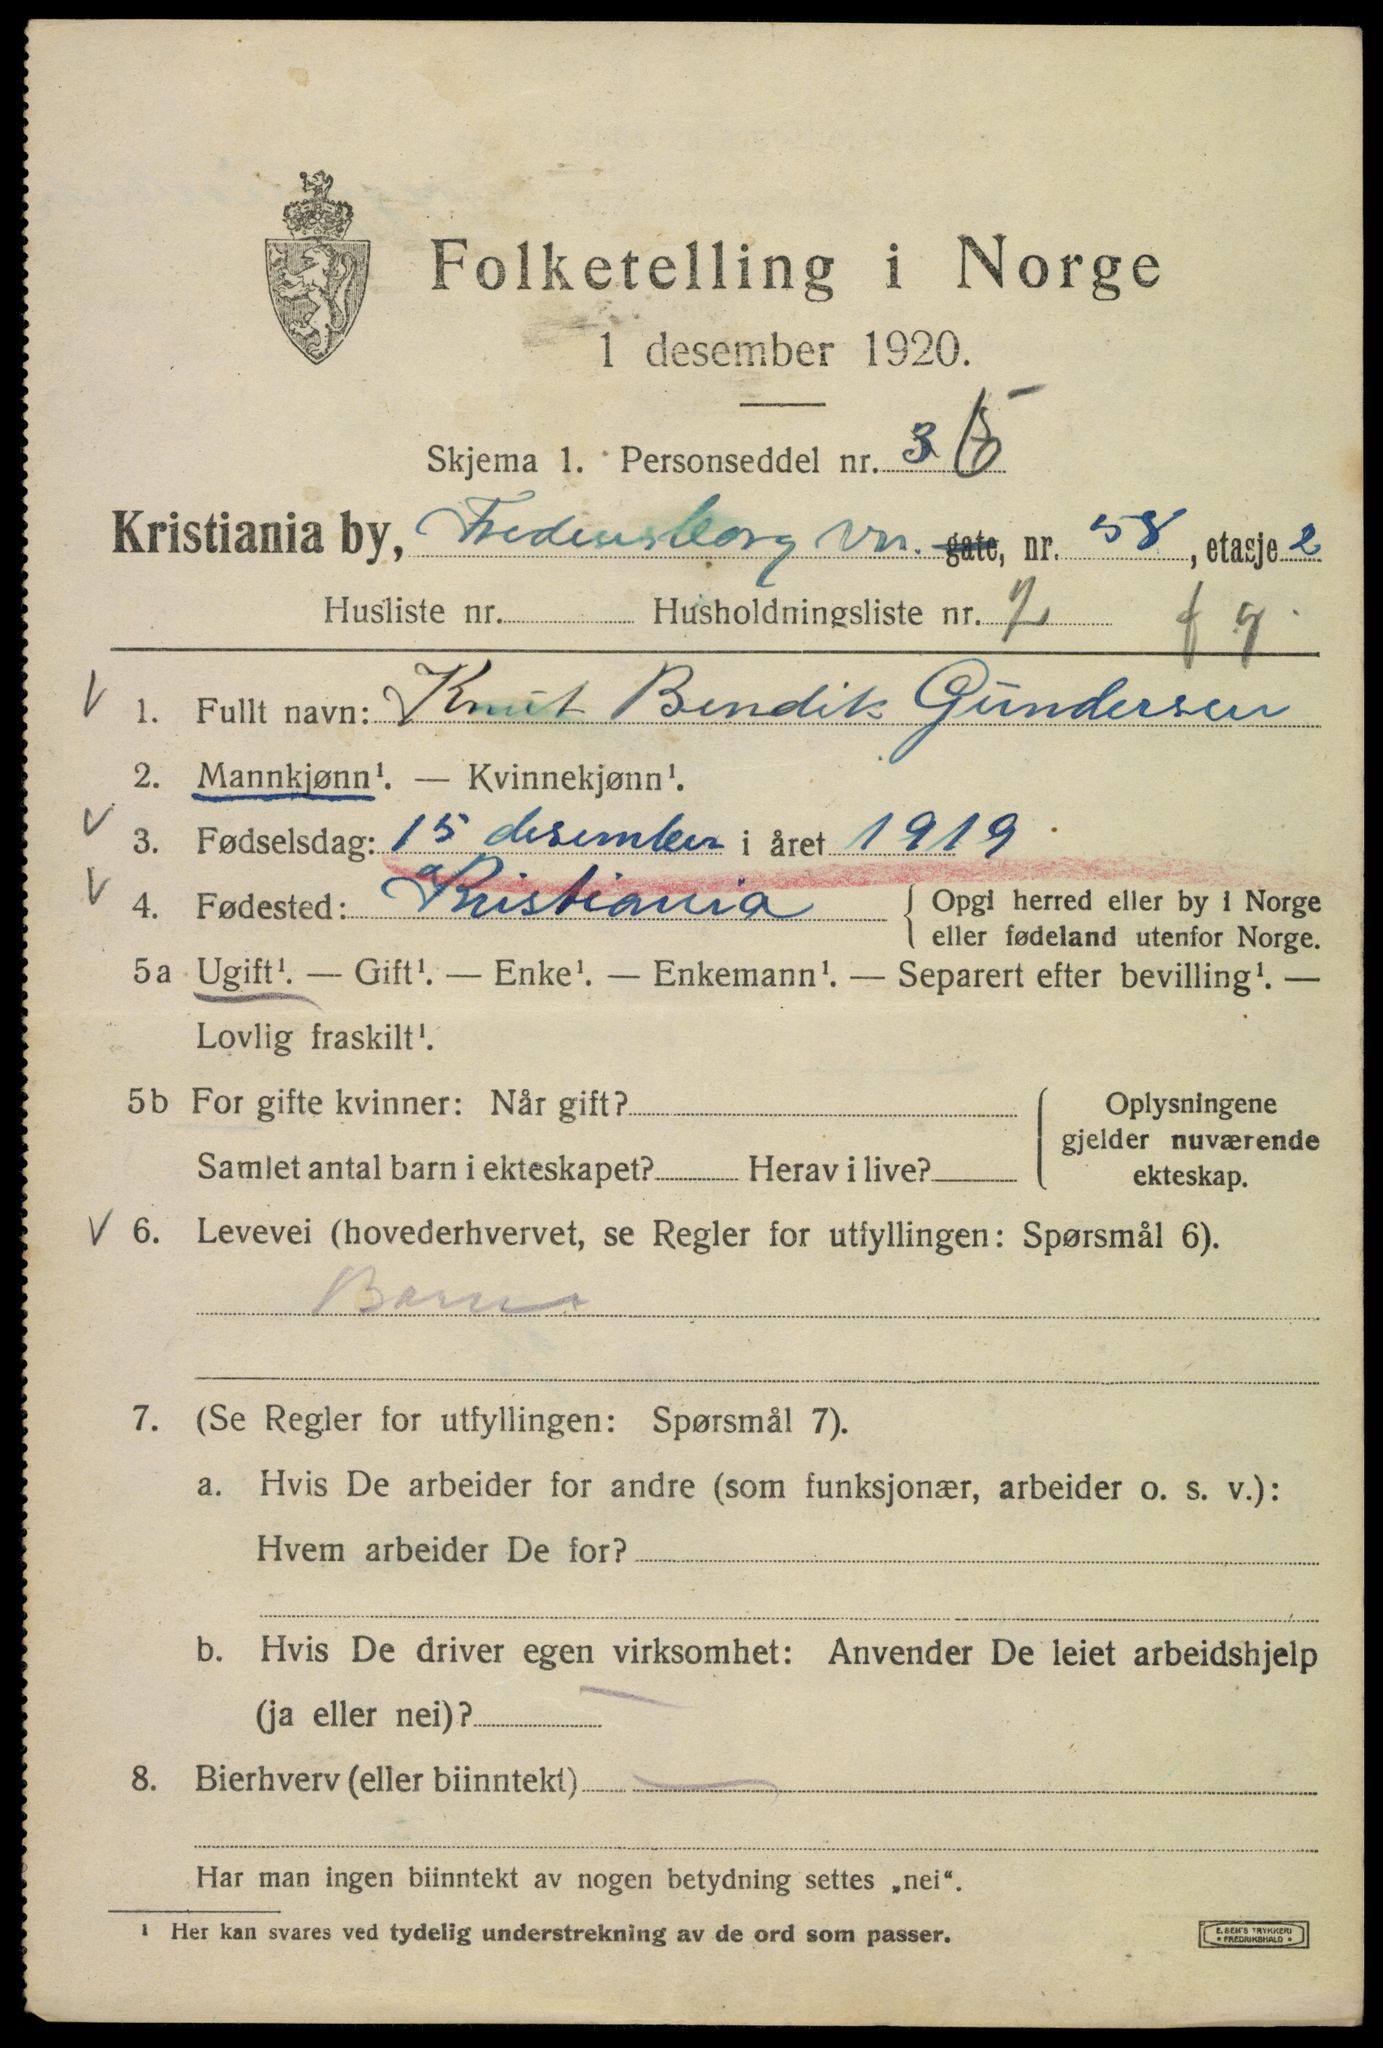 Folketelling i Norge
1 desember 1920.
Skjema 1. Personseddel nr. 3
Kristiania by, Fredensborg vn. gate, nr. 58, etasje 2
Husliste nr. Husholdningsliste nr. 7
1. Fullt navn: Knut Bendik Gundersen
2. Mannkjønn¹. — Kvinnekjønn¹.
3. Fødselsdag: 15 desember i året 1919
4. Fødested: Kristiania { Opgi herred eller by i Norge
eller fødeland utenfor Norge.
5a Ugift¹. — Gift¹. — Enke¹. — Enkemann¹. — Separert efter bevilling¹. —
Lovlig fraskilt¹.
5b For gifte kvinner: Når gift? Oplysningene
gjelder nuværende
Samlet antal barn i ekteskapet? Herav i live? ekteskap.
6. Levevei (hovederhvervet, se Regler for utfyllingen: Spørsmål 6).
Barn
7. (Se Regler for utfyllingen: Spørsmål 7).
a. Hvis De arbeider for andre (som funksjonær, arbeider o. s. v.):
Hvem arbeider De for?
b. Hvis De driver egen virksomhet: Anvender De leiet arbeidshjelp
(ja eller nei)? —
8. Bierhverv (eller biinntekt) —
Har man ingen biinntekt av nogen betydning settes „nei“.
¹ Her kan svares ved tydelig understrekning av de ord som passer.
E. SEM'S TRYKKERI
FREDRIKSHALD